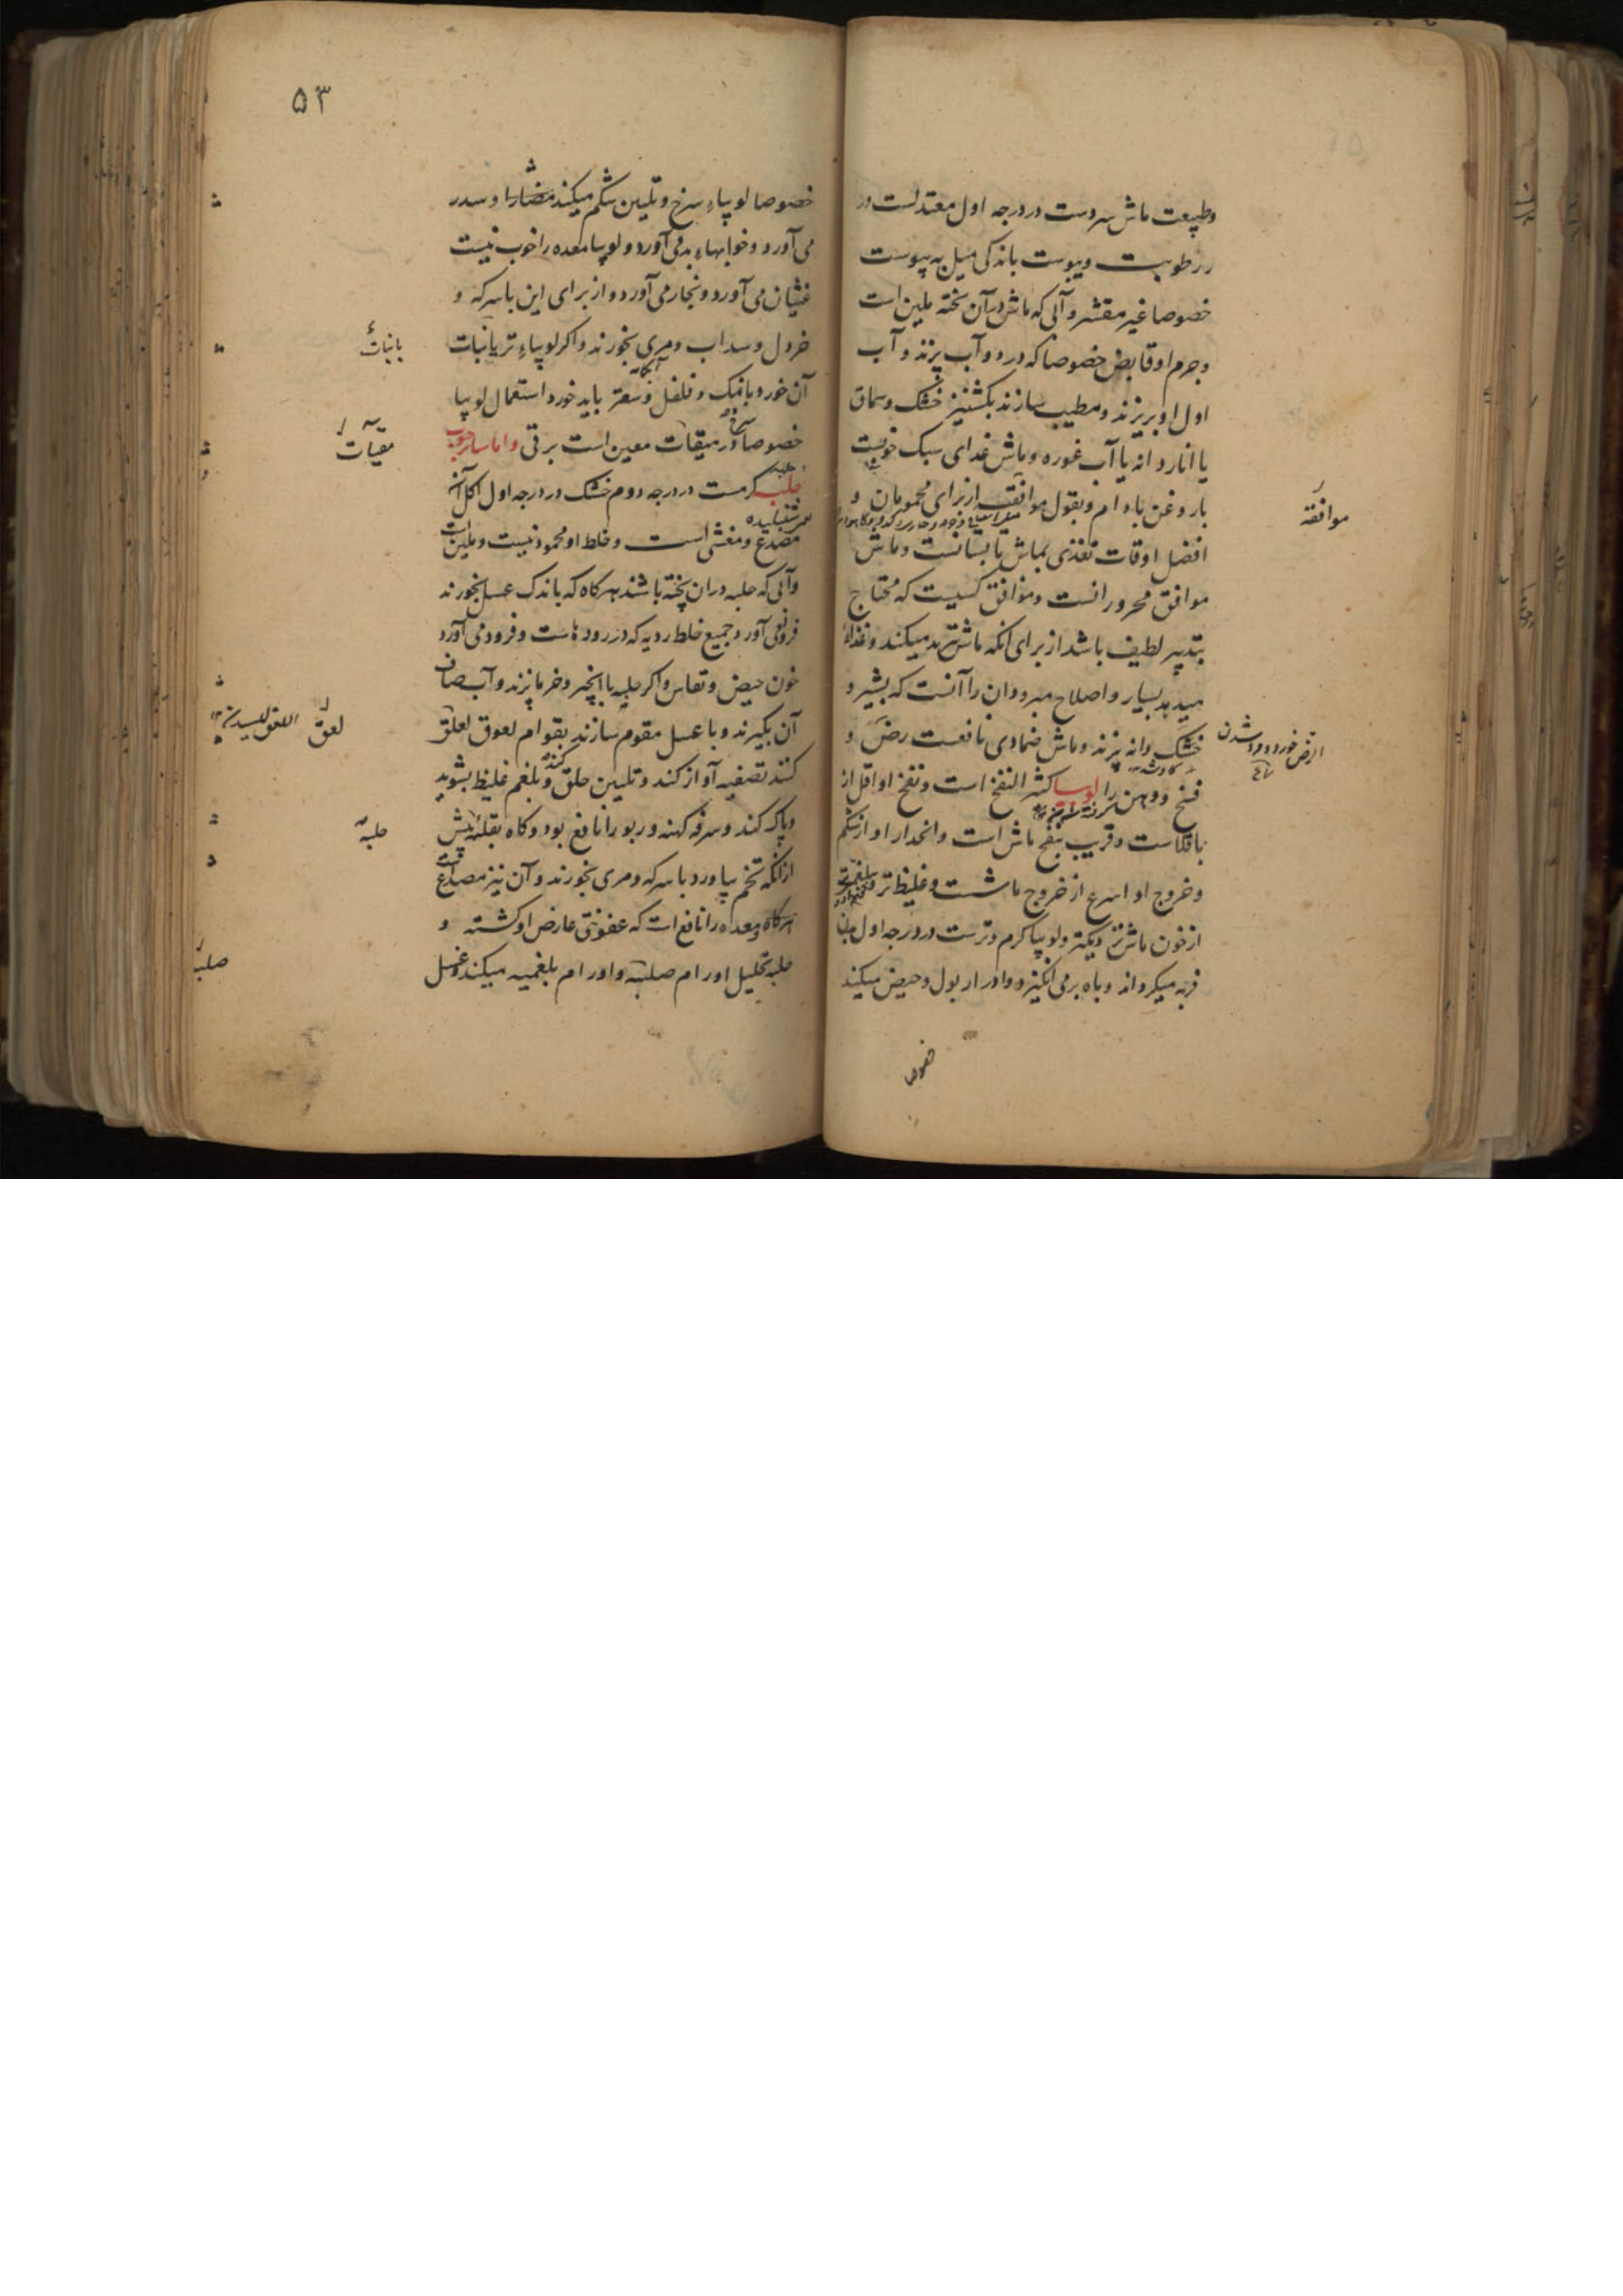 وطبیعت ماش سردست در درجه اول معتدلست در
رطوبت ویبوست باندکی میل به یبوست
خصوصا غیر مقشر وآبی که ماش درآن پخته ملین است
وجرم اوقابض خصوصا که در دو آب پزند و آب
اول او بریزند ومطیب سازند بکشنیز خشک وسماق
یا اناردانه یا آب غوره وماش غذای سبک خوبیست
باروغن بادام وبقول موافقه ازبرای محمومان و
افضل اوقات تغذی بماش تابستانست وماش
موافق محرورانست وموافق کسیست که محتاج
بتدبیر لطیف باشد از برای انکه ماش تبرید میکند وغذاء
میدهد بسیار واصلاح مبرودان را آنست که بشیر و
خشک دانه پزند وماش ضمادی نافعست رض و
فسخ ووهن را لوبیا کثیر النفخ است ونفخ اواقل از
باقلاست وقریب بنفخ ماش است وانحدار او ازشکم
وخروج او اسرع از خروج ماشست وغلیظ تر
ازخون ماش ولوبیا گرم وترست در درجه اول بدن
فربه میکرداند وباه برمی انگیزد وادرار بول وحیض میکند
خصوصا
موافقه
الرض خورد ودرد شدن
۵۳
خصوصا لوبیاء سرخ وتلیین شکم میکند مضار او سدر
می آورد وخوابهاء بد می آورد ولوبیا معده را خوب نیست
غثیان می آورد وبخار می آورد واز برای این باسرکه و
خردل وسداب ومری بخورند واکر لوبیاء تر بانبات
آن خورد بانمک وفلفل وسعتر باید خورد استعمال لوبیا
خصوصا در مقیآت معین است برقی واما سایر حبوب
حلبه کرمست در درجه دوم خشک در درجه اول اکل آن
مصدع ومغثی است وخلط اومحمود نیست وملین است
وآبی که حلبه دران پخته باشند هرکاه که باندک عسل بخورند
فرود می آورد جمیع خلط ردیه که در رودهاست وفرود می آورد
خون حیض ونفاس واکر حلبه با انجیر وخرما پزند وآب صاف
آن بکیرند وبا عسل مقوم سازند بقوام لعوق لعق
کنند تصفیه آواز کند وتلیین حلق وبلغم غلیظ بشوید
وپاک کند وسرفه کهنه وربو را نافع بود وکاه بقله پیش
ازانکه تخم بیاورد باسرکه ومری بخورند وآن نیز مصدع
هرکاه معده را نافع است که عفونتی عارض اوکشته و
حلبه تحلیل اورام صلبه واورام بلغمیه میکند وغسل
بانبات
مقیآت
لعق
حلبه
صلبه